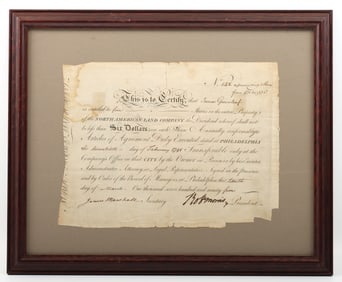 This is to Certify that James Greenleaf
is entitled to Shares in the entire Property of
the NORTH AMERICAN LAND COMPANY the Dividend whereof shall not
be less than Six Dollars on each Share Annually conformably to
Articles of Agreement Duly Executed dated at PHILADELPHIA
the day of February 1795 Transferable only at the
Company's Office in that CITY by the Owner in Person or by his
Administrator Attorney or Legal Representative Signed in the presence
and by Order of the Board of Managers at Philadelphia this
day of March One thousand seven hundred and ninety five
James Marshall Secretary Rob Morris President